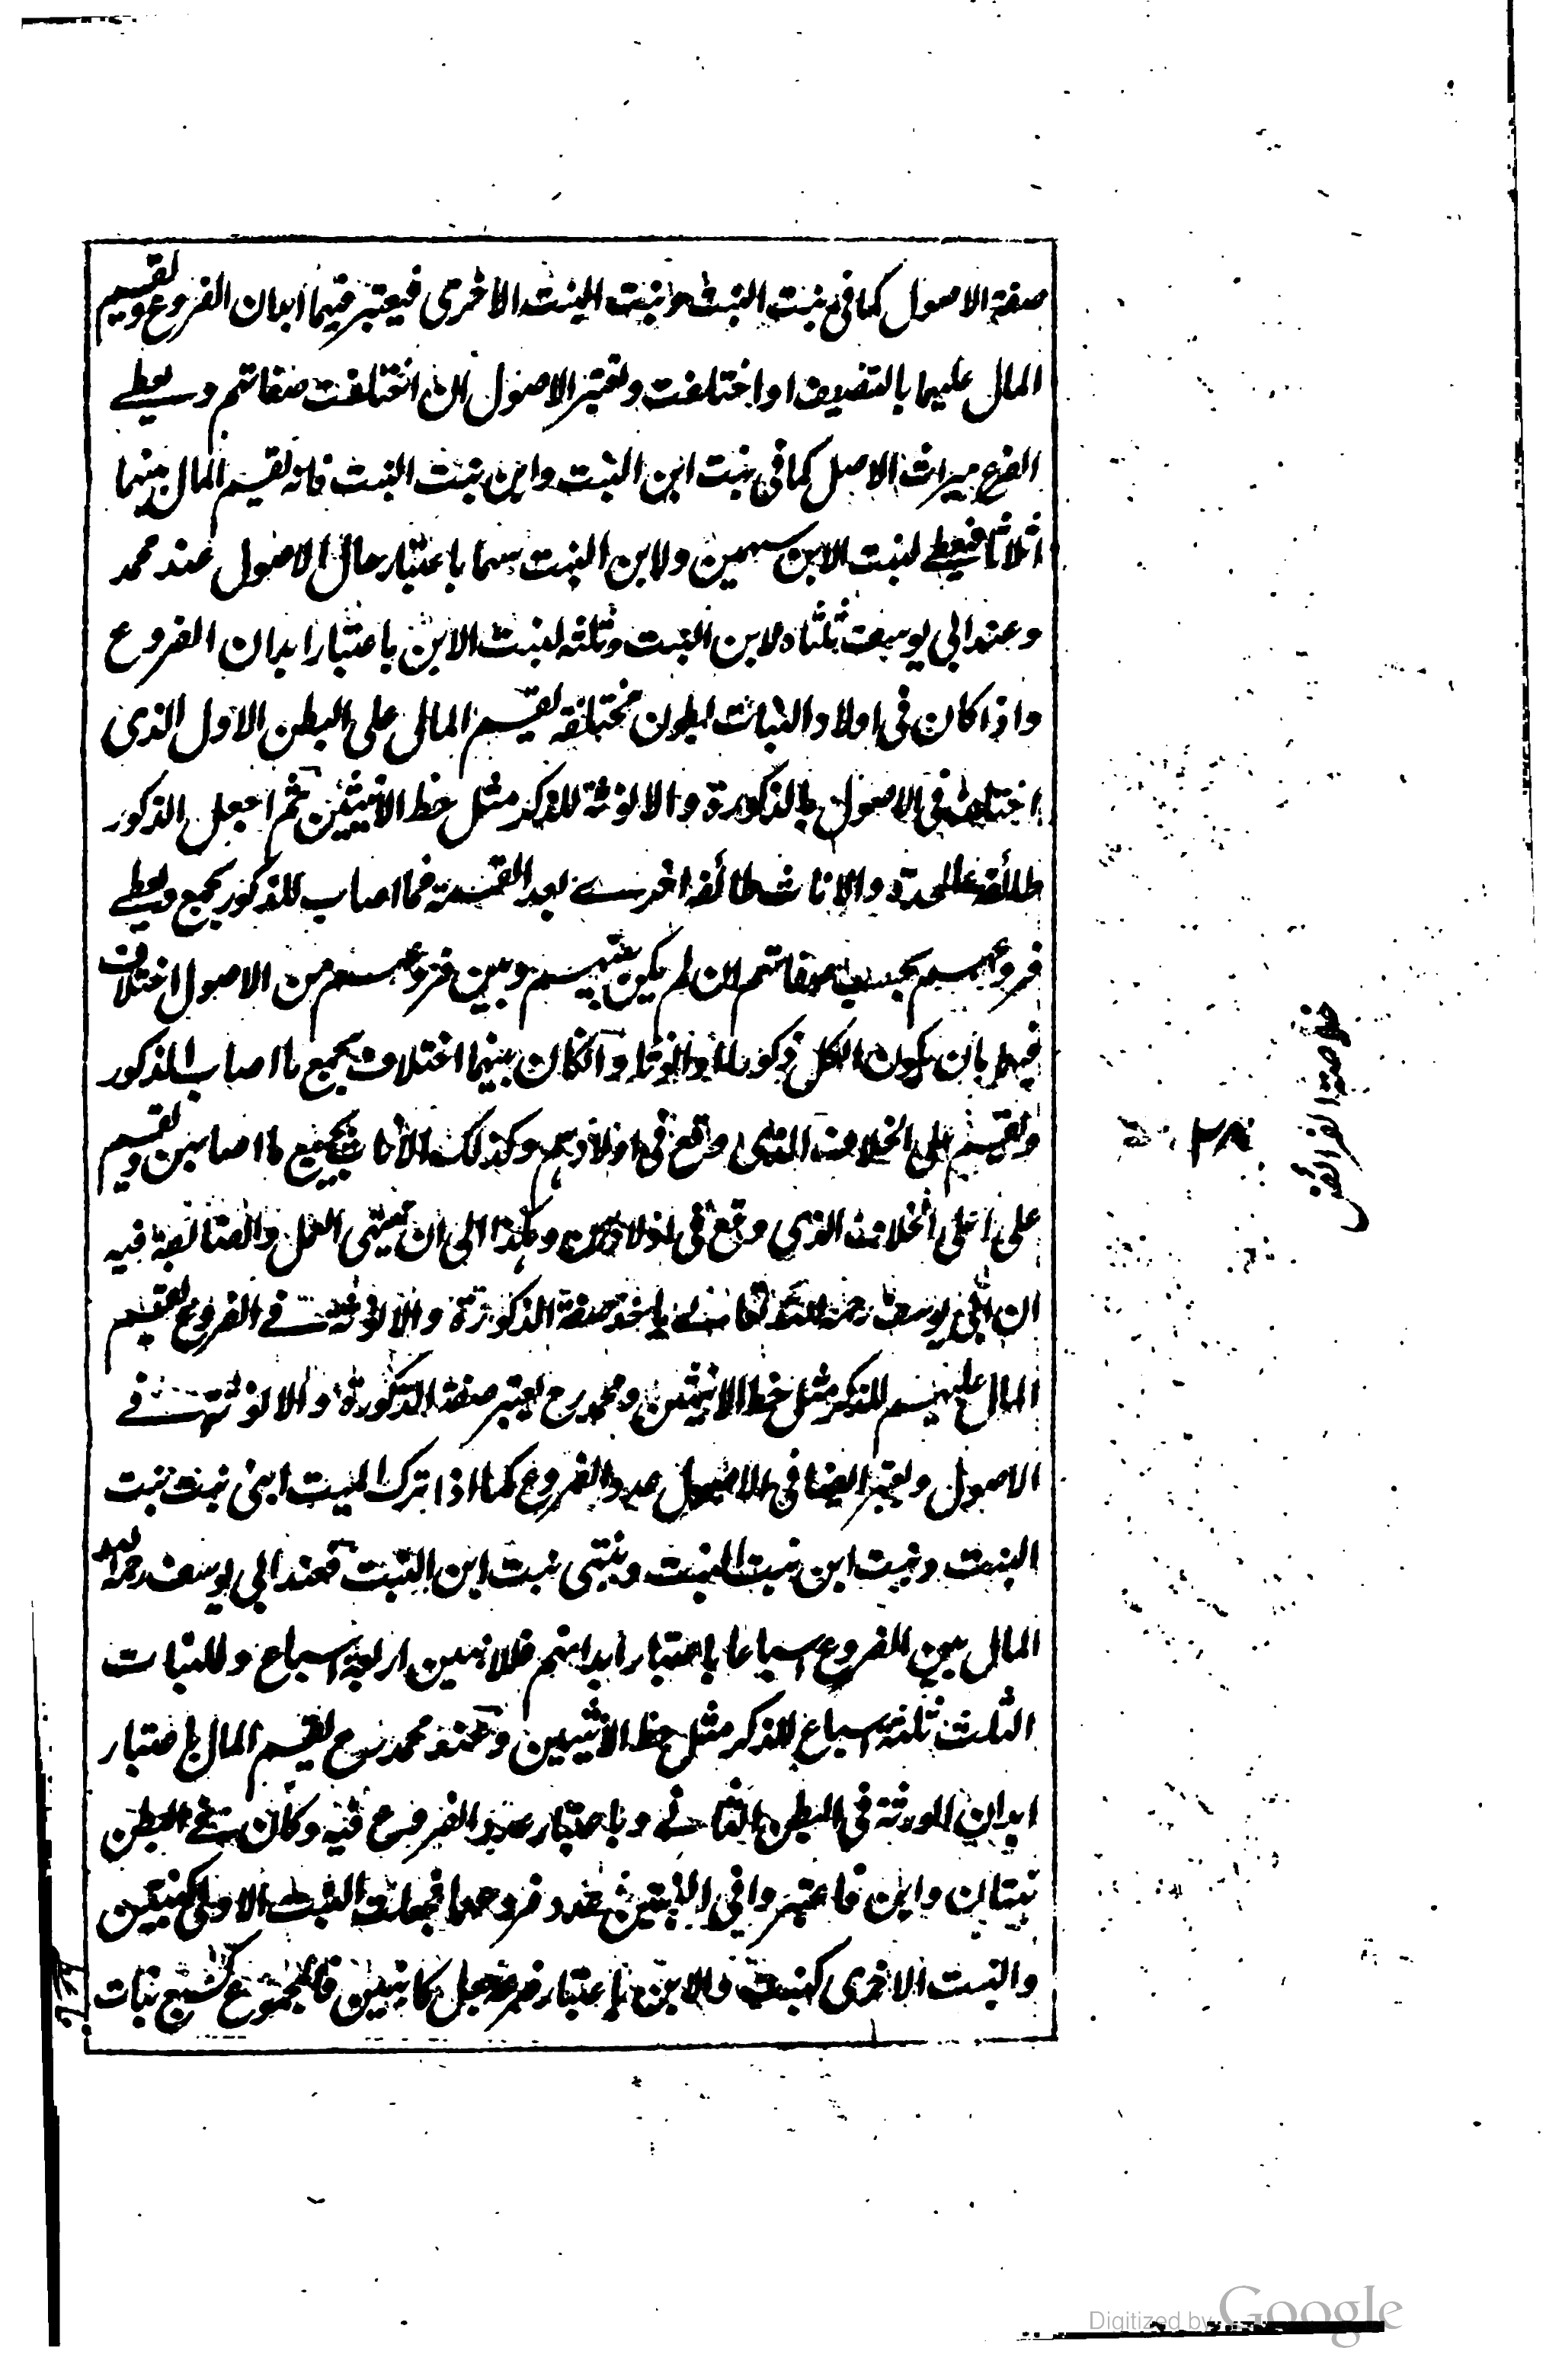 صفة الاصول كما فى بنت البنت و بنت البنت الاخرى فيعتبر فيهما ابدان الفروع ويقسم
المال عليهما بالتنصيف او اختلفت وتعتبر الاصول ان اختلفت صفاتهم ويعطے
الفرع ميراث الاصل كما فى بنت ابن البنت وابن بنت البنت فانه يقسم المال بينهما
اثلاثا فيعطے لبنت الابن سهمين ولابن البنت سهما باعتبار حال الاصول عند محمد
وعند ابى يوسف ثلثاه لابن البنت وثلثه لبنت الابن باعتبار ابدان الفروع
واذا كان فى اولاد البنات بطون مختلفة يقسم المال على البطن الاول الذى
اختلف فى الاصول بالذكورة والانوثة للذكر مثل حظ الانثيين ثم اجعل الذكور
طائفة علاحدة والاناث طائفة اخرے بعد القسمة فما اصاب للذكور يجمع ويعطے
فروعهم بحسب صفاتهم ان لم يكن بينهم وبين فروعهم من الاصول اختلاف
فيها بان يكون الكل ذكورا او اناثا وانكان بينهما اختلاف يجمع ما اصاب الذكور
ويقسم على الخلاف الذى وقع فى اولادهم وكذلك الاناث يجمع ما اصابهن ويقسم
على اعلى الخلاف الذى وقع فى اولادهن وهكذا الى ان ينتهى العمل والضابطة فيه
ان ابى يوسف رحمه الله تعالے ياخذ صفة الذكورة والانوثة فے الفروع يقسم
المال عليهم للذكر مثل حظ الانثيين ومحمد رح يعتبر صفة الذكورة والانوثة فے
الاصول ويعتبر ايضا فى الاصول عدد الفروع كما اذا ترك الميت ابنى بنت بنت
البنت وبنت ابن بنت البنت وبنتى بنت ابن البنت فعند ابى يوسف رحمه الله
المال بين الفروع اسباعا باعتبار ابدانهم فلابنين اربعة اسباع وللبنات
الثلث ثلثة اسباع للذكر مثل حظ الانثيين وعند محمد رح يقسم المال باعتبار
ابدان الورثة فى البطن الثانے وباعتبار عدد الفروع فيه وكان فے البطن
بنتان وابن فاعتبروا فى البنتين عدد فروعهما فجعلت البنت الاولى كبنتين
والبنت الاخرى كبنت والابن باعتبار فرعه جعل كابنين فالمجموع كسبع بنات
خلاصة الفرائض
٢٨
Digitized by Google